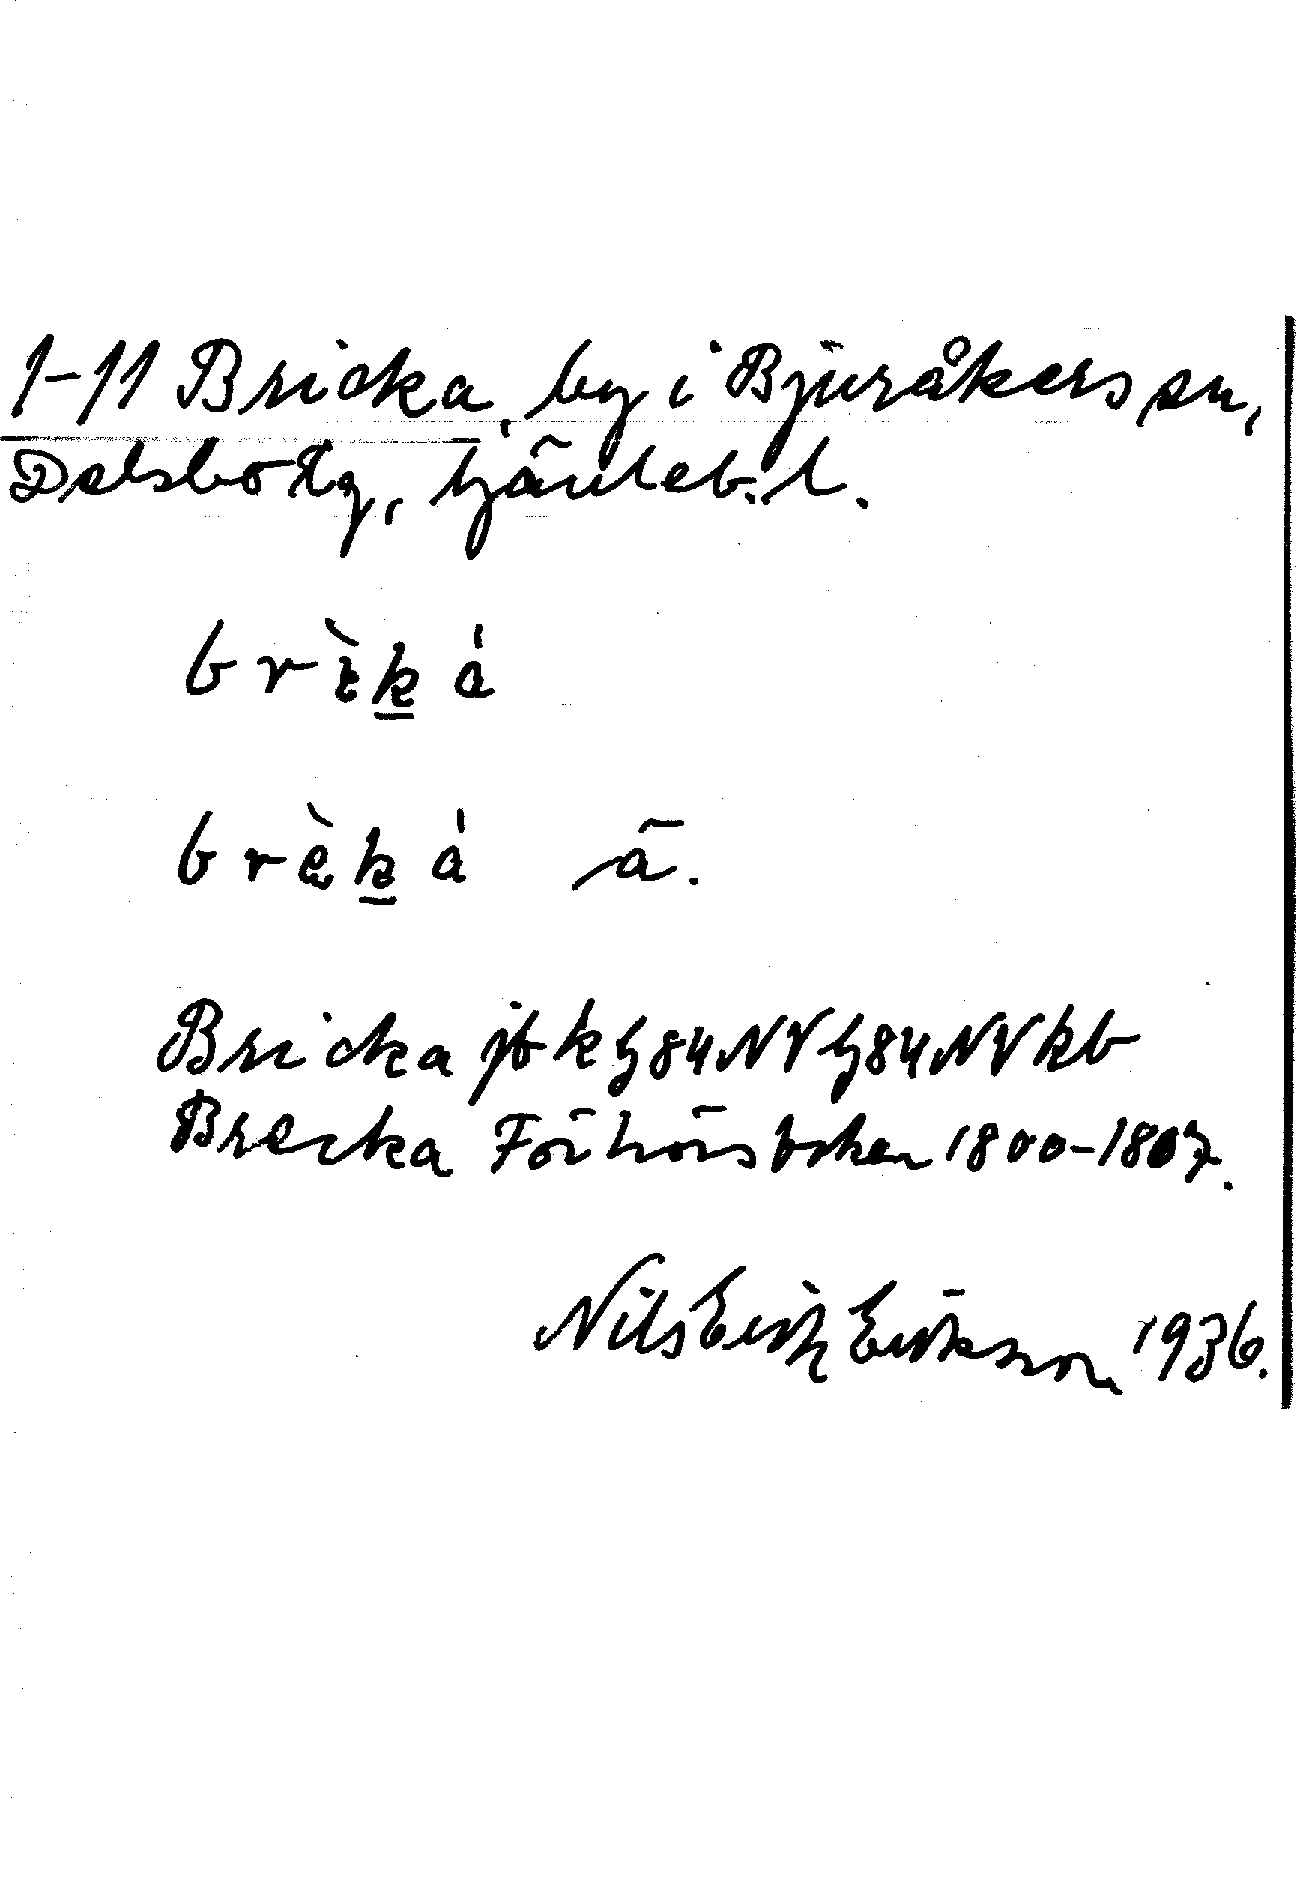 1-11 Bricka, by i Bjuråkers sn,
Delsbo tg, Gävleb. l.
brìká
brèká ä.
Bricka jb k h84NV h84NV kb
Brecka Förhörsboken 1800-1807.
Nils Erik Eriksson 1936.